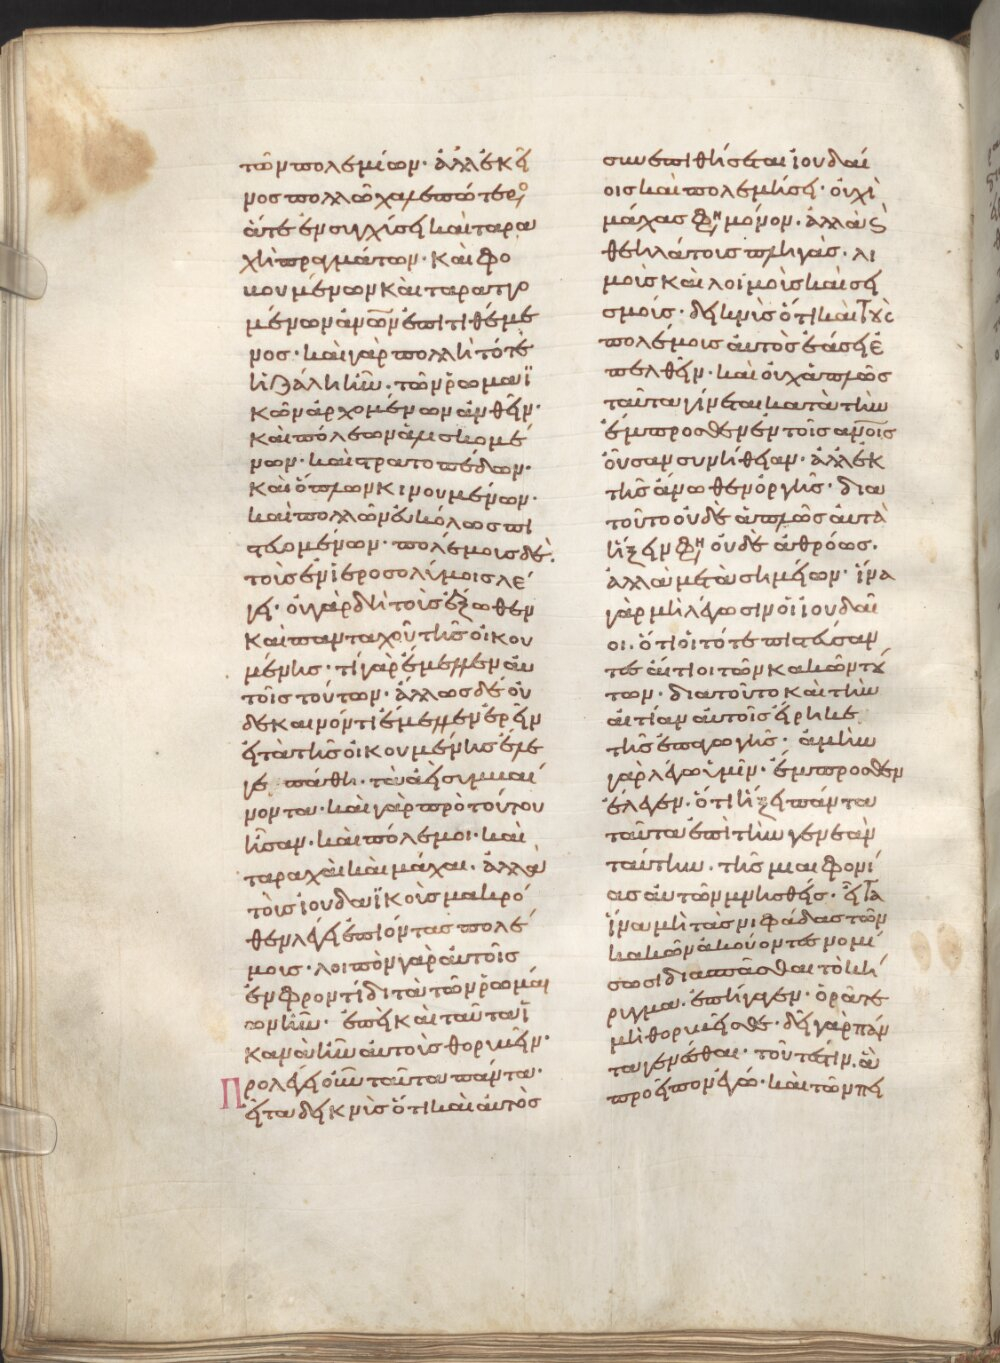 τῶν πολεμίων· ἀλλ' ἐκεῖ
νος πολλῶ χαλεπώτερο,
ἅτε ἐν συγχύσει καὶ ταρα
χῆ πραγμάτων· καὶ φο
νουμένων καὶ ταραττο
μένων ἀνων ἐπιτιθέμε
νος· καὶ γὰρ πολλὴ τότε
ἡ ζάλη ἦν. τῶν ῥωμαϊ
κῶν ἀρχομένων ἀνθεῖν·
καὶ πόλεων ἁλισκομέ
νων· καὶ στρατοπέδων·
καὶ ὅπλων κινουμένων·
καὶ πολλῶν εὐκόλως πι
στευομένων· πολέμοις δὲ.
τοὺς ἐν ἱεροσολύμοις λέ
γει· οὐ γὰρ δὴ τοὺς ἔξωθεν
καὶ πανταχοῦ τῆς οἰκου
μένης· τί γὰρ ἔμελλεν αὐ
τοῖς τούτων· ἄλλως δὲ οὐ
δὲ καινόν τι ἔμελλεν ἐρεῖν
εἰ τὰ τῆς οἰκουμένης ἔλε
γε πάθη· τὰ ἀεὶ συμβαί
νοντα· καὶ γὰρ πρὸ τούτου
ἦσαν· καὶ πόλεμοι· καὶ
ταραχαὶ καὶ μάχαι· ἀλλὰ
τοὺς ἰουδαϊκοὺς μακρό
θεν λέγει ἐπιόντας πολέ
μους· λοιπὸν γὰρ αὐτοῖς
ἐν φροντίδι τὰ τῶν ῥωμαί
ων ἦν· ἐπεὶ καὶ ταῦτα ἱ
κανὰ ἦν αὐτοὺς θορυβεῖν·
Προλέγει οὖν ταῦτα πάντα·
εἶτα δεικνὺς ὅτι καὶ αὐτὸς
συνεπιθήσεται ἰουδαί
οις καὶ πολεμήσει· οὐχὶ
μάχας φη μόνον· ἀλλὰ καὶ
θεηλάτους πληγὰς· λι
μοὺς καὶ λοιμοὺς καὶ σει
σμούς· δεικνὺς ὅτι καὶ τοὺς
πολέμους αὐτὸς ἐάσει ἐ
πελθεῖν· καὶ οὐχ ἁπλῶς
ταῦτα γίνεται κατὰ τὴν
ἔμπροσθεν ἐν τοῖς ανοις
οὖσαν συνήθειαν· ἀλλ' ἐκ
τῆς ἄνωθεν ὀργῆς· διὰ
τοῦτο οὐδὲ ἁπλῶς αὐτὰ
ἥξειν φη οὐδὲ ἀθρόως·
ἀλλὰ μετὰ σημείων· ἵνα
γὰρ μὴ λέγωσιν οἱ ἰουδαῖ
οι· ὅτι οἱ τότε πιστεύσαν
τες αἴτιοι τῶν κακῶν τού
των· διὰ τοῦτο καὶ τὴν
αἰτίαν αὐτοῖς εἴρηκε
τῆς ἐπαγωγῆς· ἀμὴν
γὰρ λέγω ὑμῖν· ἔμπροσθεν
ἔλεγεν· ὅτι ἥξει πάντα
ταῦτα ἐπὶ τὴν γενεὰν
ταύτην· τῆς μιαιφονί
ας αὐτῶν μνησθείς· εἶτα
ἵνα μὴ τὰς νιφάδας τῶν
κακῶν ἀκούοντες νομί
σωσι διασπᾶσθαι τὸ κή
ρυγμα· ἐπήγαγεν· ὁρᾶτε
μὴ θορυβεῖσθε· δεῖ γὰρ πάν
τα γενέσθαι· τουτέστιν· ἃ
προεῖπον ἐγώ· καὶ τῶν πει